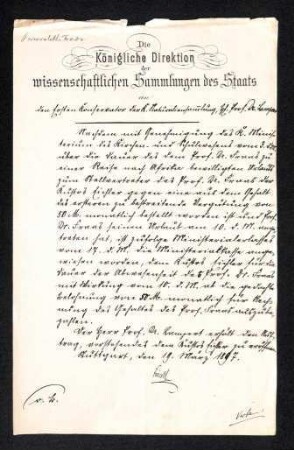 Die
Königliche Direktion
der
wissenschaftlichen Sammlungen des Staats
an
den Ersten Konservator der K. Naturaliensammlung, Hr. Prof. Dr. Lampert
Nachdem mit Genehmigung des K. Ministeriums
des Kirchen- und Schulwesens vom
über die Dauer des dem Prof. Dr. Fraas zu
einer Reise nach Afrika bewilligten Urlaubs
zum Stellvertreter des Prof. Dr. Fraas der
Kustos Eichler gegen eine aus dem Gehalt
des ersteren zu bestreitende Vergütung von
50 M. monatlich bestellt worden ist und Prof.
Dr. Fraas seinen Urlaub am 10. d. M. angetreten
hat, ist zufolge Ministerialerlasses
vom 17. d. M. die Ministerialkasse angewiesen
worden, dem Kustos Eichler für die
Dauer der Abwesenheit des Prof. Dr. Fraas
mit Wirkung vom 10. d. M. an die gedachte
Belohnung von 50 M. monatlich für Rechnung
des Gehaltes des Prof. Fraas auszubezahlen.
Der Herr Prof. Dr. Lampert erhält den Auftrag,
vorstehendes dem Kustos Eichler zu eröffnen.
Stuttgart, den 19. März 1897.